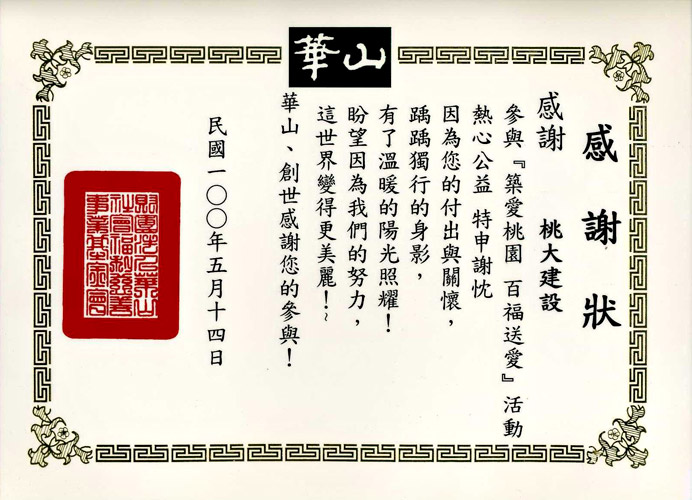 華山
感謝狀
感謝 桃大建設
參與『築愛桃園 百福送愛』活動
熱心公益 特申謝忱
因為您的付出與關懷，
踽踽獨行的身影，
有了溫暖的陽光照耀！
盼望因為我們的努力，
這世界變得更美麗！~
華山、創世感謝您的參與！
民國一〇〇年五月十四日
財團法人華山
社會福利慈善
事業基金會